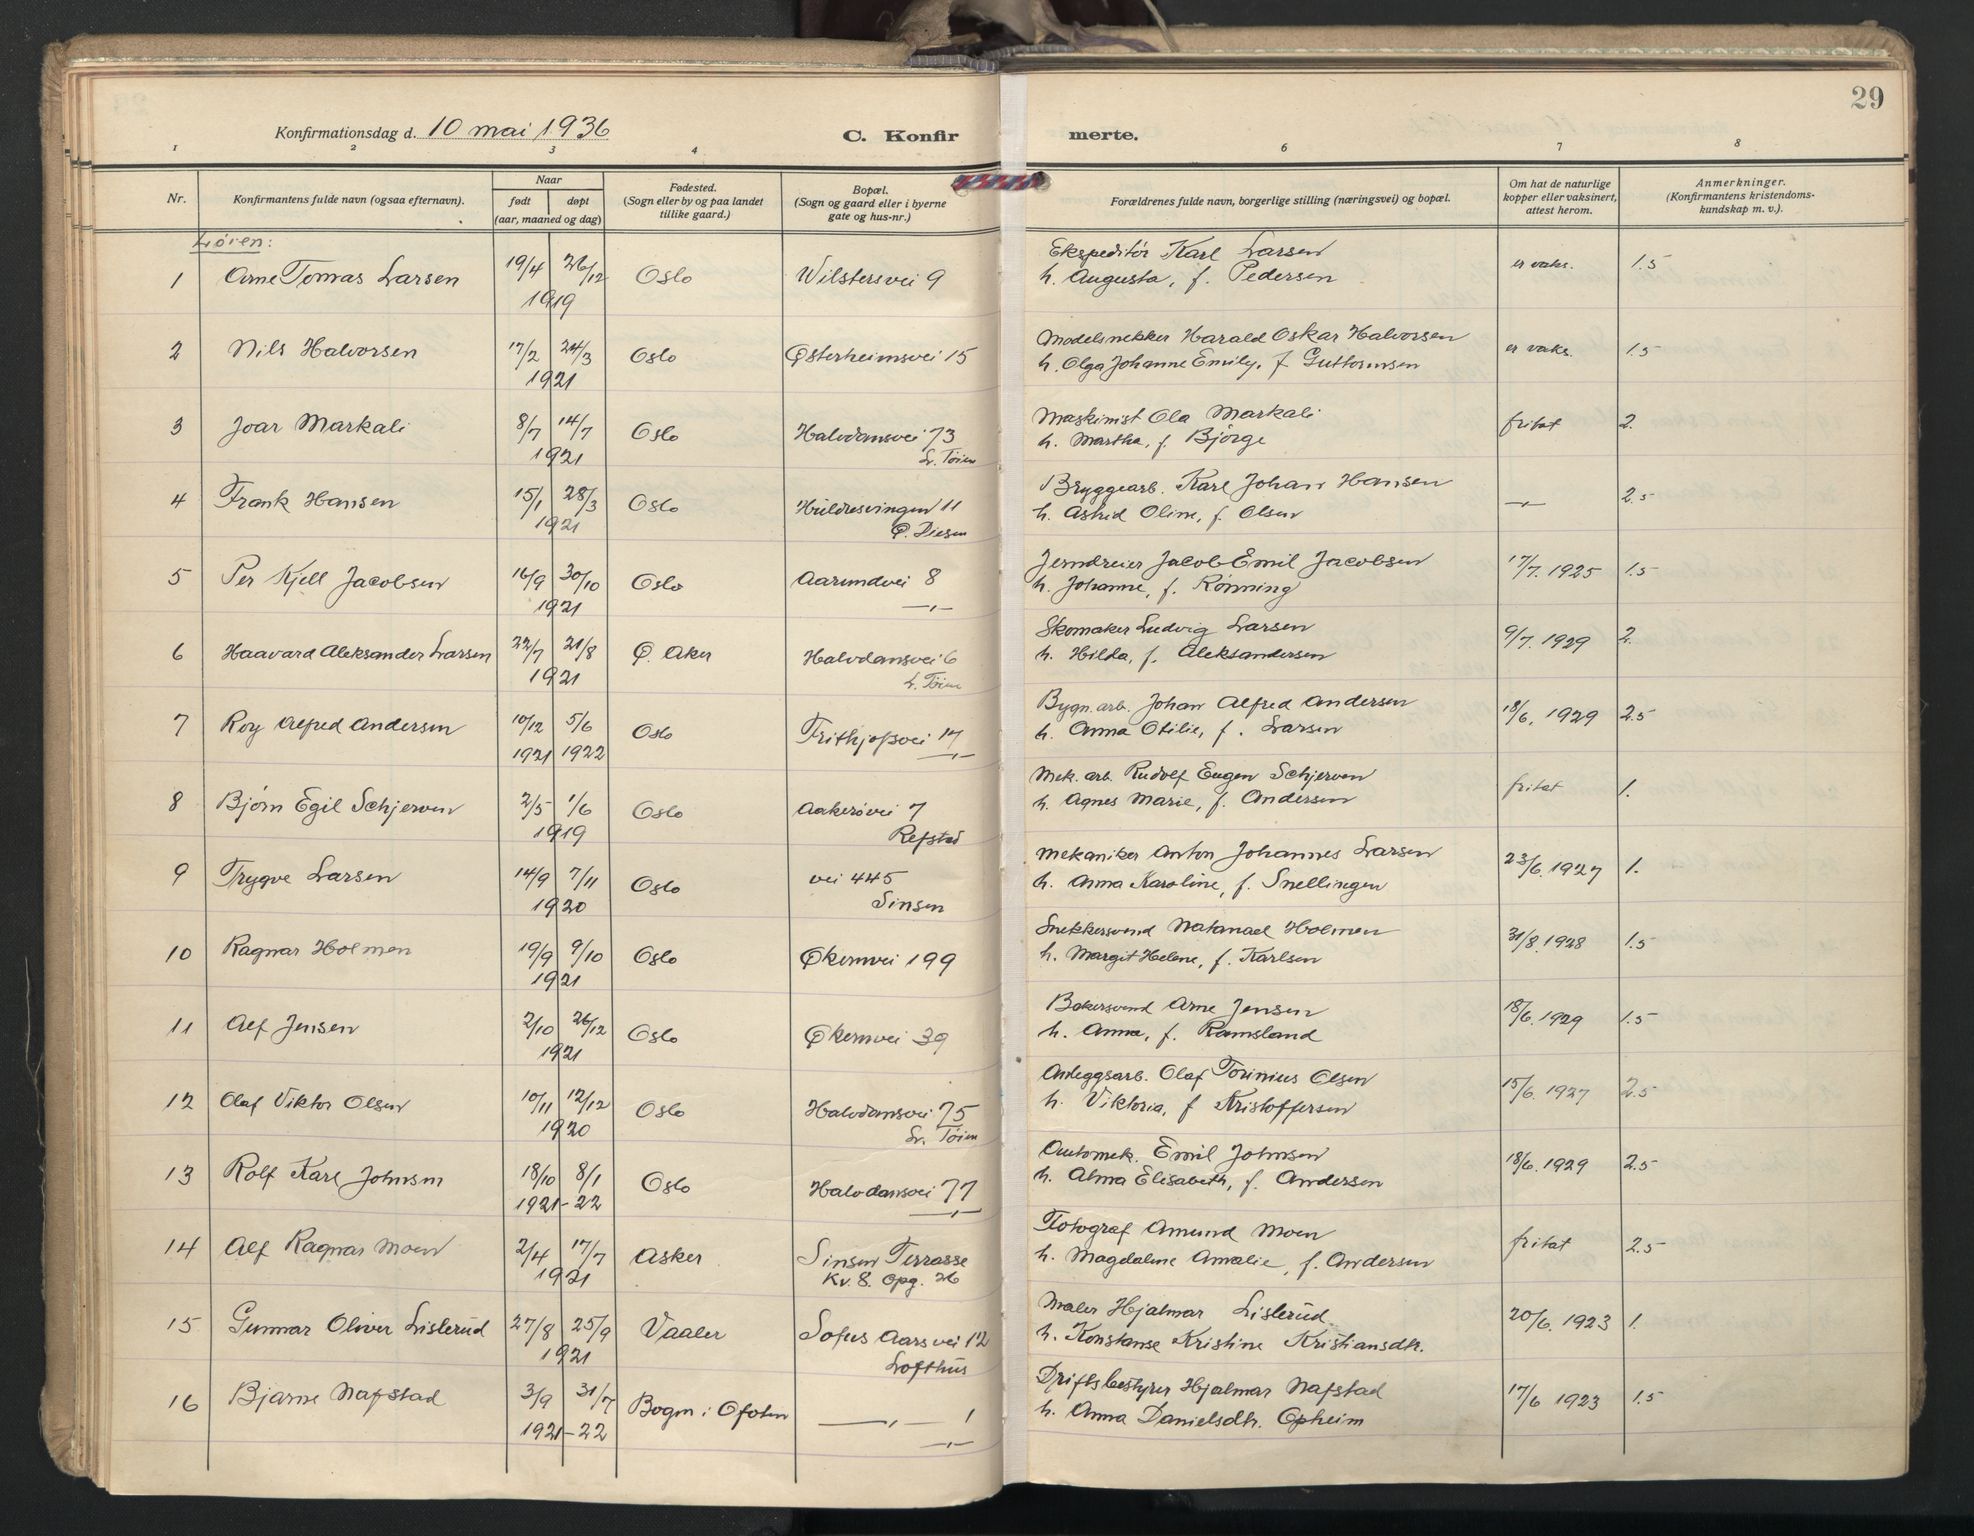 29
Konfirmationsdag d. 10 mai 1936
C. Konfir merte.
1 2 3 4 6 7 8
Nr.
Konfirmantens fulde navn (ogsaa efternavn).
Naar
født døpt
(aar, maaned og dag)
Fødested.
(Sogn eller by og paa landet
tillike gaard.)
Bopæl.
(Sogn og gaard eller i byerne
gate og hus-nr.)
Forældrenes fulde navn, borgerlige stilling (næringsvei) og bopæl.
Om hat de naturlige
kopper eller vaksinert,
attest herom.
Anmerkninger.
(Konfirmantens kristendoms-
kundskap m. v.).
Løren:
1 Arne Tomas Larsen 19/4 26/12 1919 Oslo Wilstersvei 9
Ekspeditør Karl Larsen
h. Augusta, f. Pedersen
er vaks. 1.5
2 Nils Halvorsen 17/2 24/3 1921 Oslo Østerheimsvei 15
Modelsnekker Harald Oskar Halvorsen
h. Olga Johanne Emily, f Guttormsen
er vaks. 1.5
3 Joar Markali 8/7 14/7 1921 Oslo Halvdansvei 73
Lr. Tøien
Maskinist Ola Markali
h. Martha, f. Bjørge
fritat 2.
4 Frank Hansen 15/1 28/3 1921 Oslo Huldresvingen 11
Ø. Disen
Bryggearb. Karl Johan Hansen
h. Astrid Oline, f. Olsen
—"— 2.5
5 Per Kjell Jacobsen 16/9 30/10 1921 Oslo Aarundvei 8
—"—
Jerndreier Jacob Emil Jacobsen
h. Johanne, f. Rønning
17/7. 1925 1.5
6 Haavard Aleksander Larsen 22/7 21/8 1921 Ø. Aker Halvdansvei 6
L. Tøien
Skomaker Ludvig Larsen
h. Hilda, f. Aleksandersen
9/7. 1929 2.
7 Roy Alfred Andersen 10/12 5/6
1921 1922 Oslo Frithjofsvei 17
—"—
Bygn. arb. Johan Alfred Andersen
h. Anna Otilie, f. Larsen
18/6, 1929 2.5
8 Bjørn Egil Schjerven 2/5 1/6 1919 Oslo Aakerøvei 7
Refstad
Mek. arb. Rudolf Eugen Schjerven
h. Agnes Marie, f. Andersen
fritat 1.
9 Trygve Larsen 14/9 7/11 1920 Oslo vei 445
Sinsen
Mekaniker Anton Johannes Larsen
h. Anna Karoline, f. Snellingen
23/6. 1927 1.
10 Ragnar Holmen 19/9 9/10 1921 Oslo Økernvei 199
Snekkersvend Natanael Holmen
h. Margit Helene, f. Karlsen
31/8. 1928 1.5
11 Alf Jensen 2/10 26/12 1921 Oslo Økernvei 39
Bakersvend Arne Jensen
h. Anna, f. Ramsland
18/6. 1929 1.5
12 Olaf Viktor Olsen 10/11 12/12 1920 Oslo Halvdansvei 75
Lr. Tøien
Anleggsarb. Olaf Torinius Olsen
h. Viktoria, f Kristoffersen
15/6. 1927 2.5
13 Rolf Karl Johnsen 18/10 8/1
1921-22 Oslo Halvdansvei 77
—"—
Automek. Emil Johnsen
h. Alma Elisabeth, f. Andersen
18/6. 1929 2.5
14 Alf Ragnar Moen 2/4 17/7 1921 Asker Sinsen Terrasse
Kv. 8. Opg. 26
Fotograf Amund Moen
h. Magdalene Amalie, f. Andersen
fritat 2.5
15 Gunnar Oliver Lislerud 27/8 25/9 1921 Vaaler Sofus Aarsvei 12
Lofthus
Maler Hjalmar Lislerud
h. Konstanse Kristine Kristiansdtr.
20/6. 1923 1.
16 Bjarne Nafstad 3/9 31/7
1921-22 Bogen i Ofoten —"— 1
—"—
Driftsbestyrer Hjalmar Nafstad
h. Anna Danielsdtr. Opheim
17/6 1923 1.5